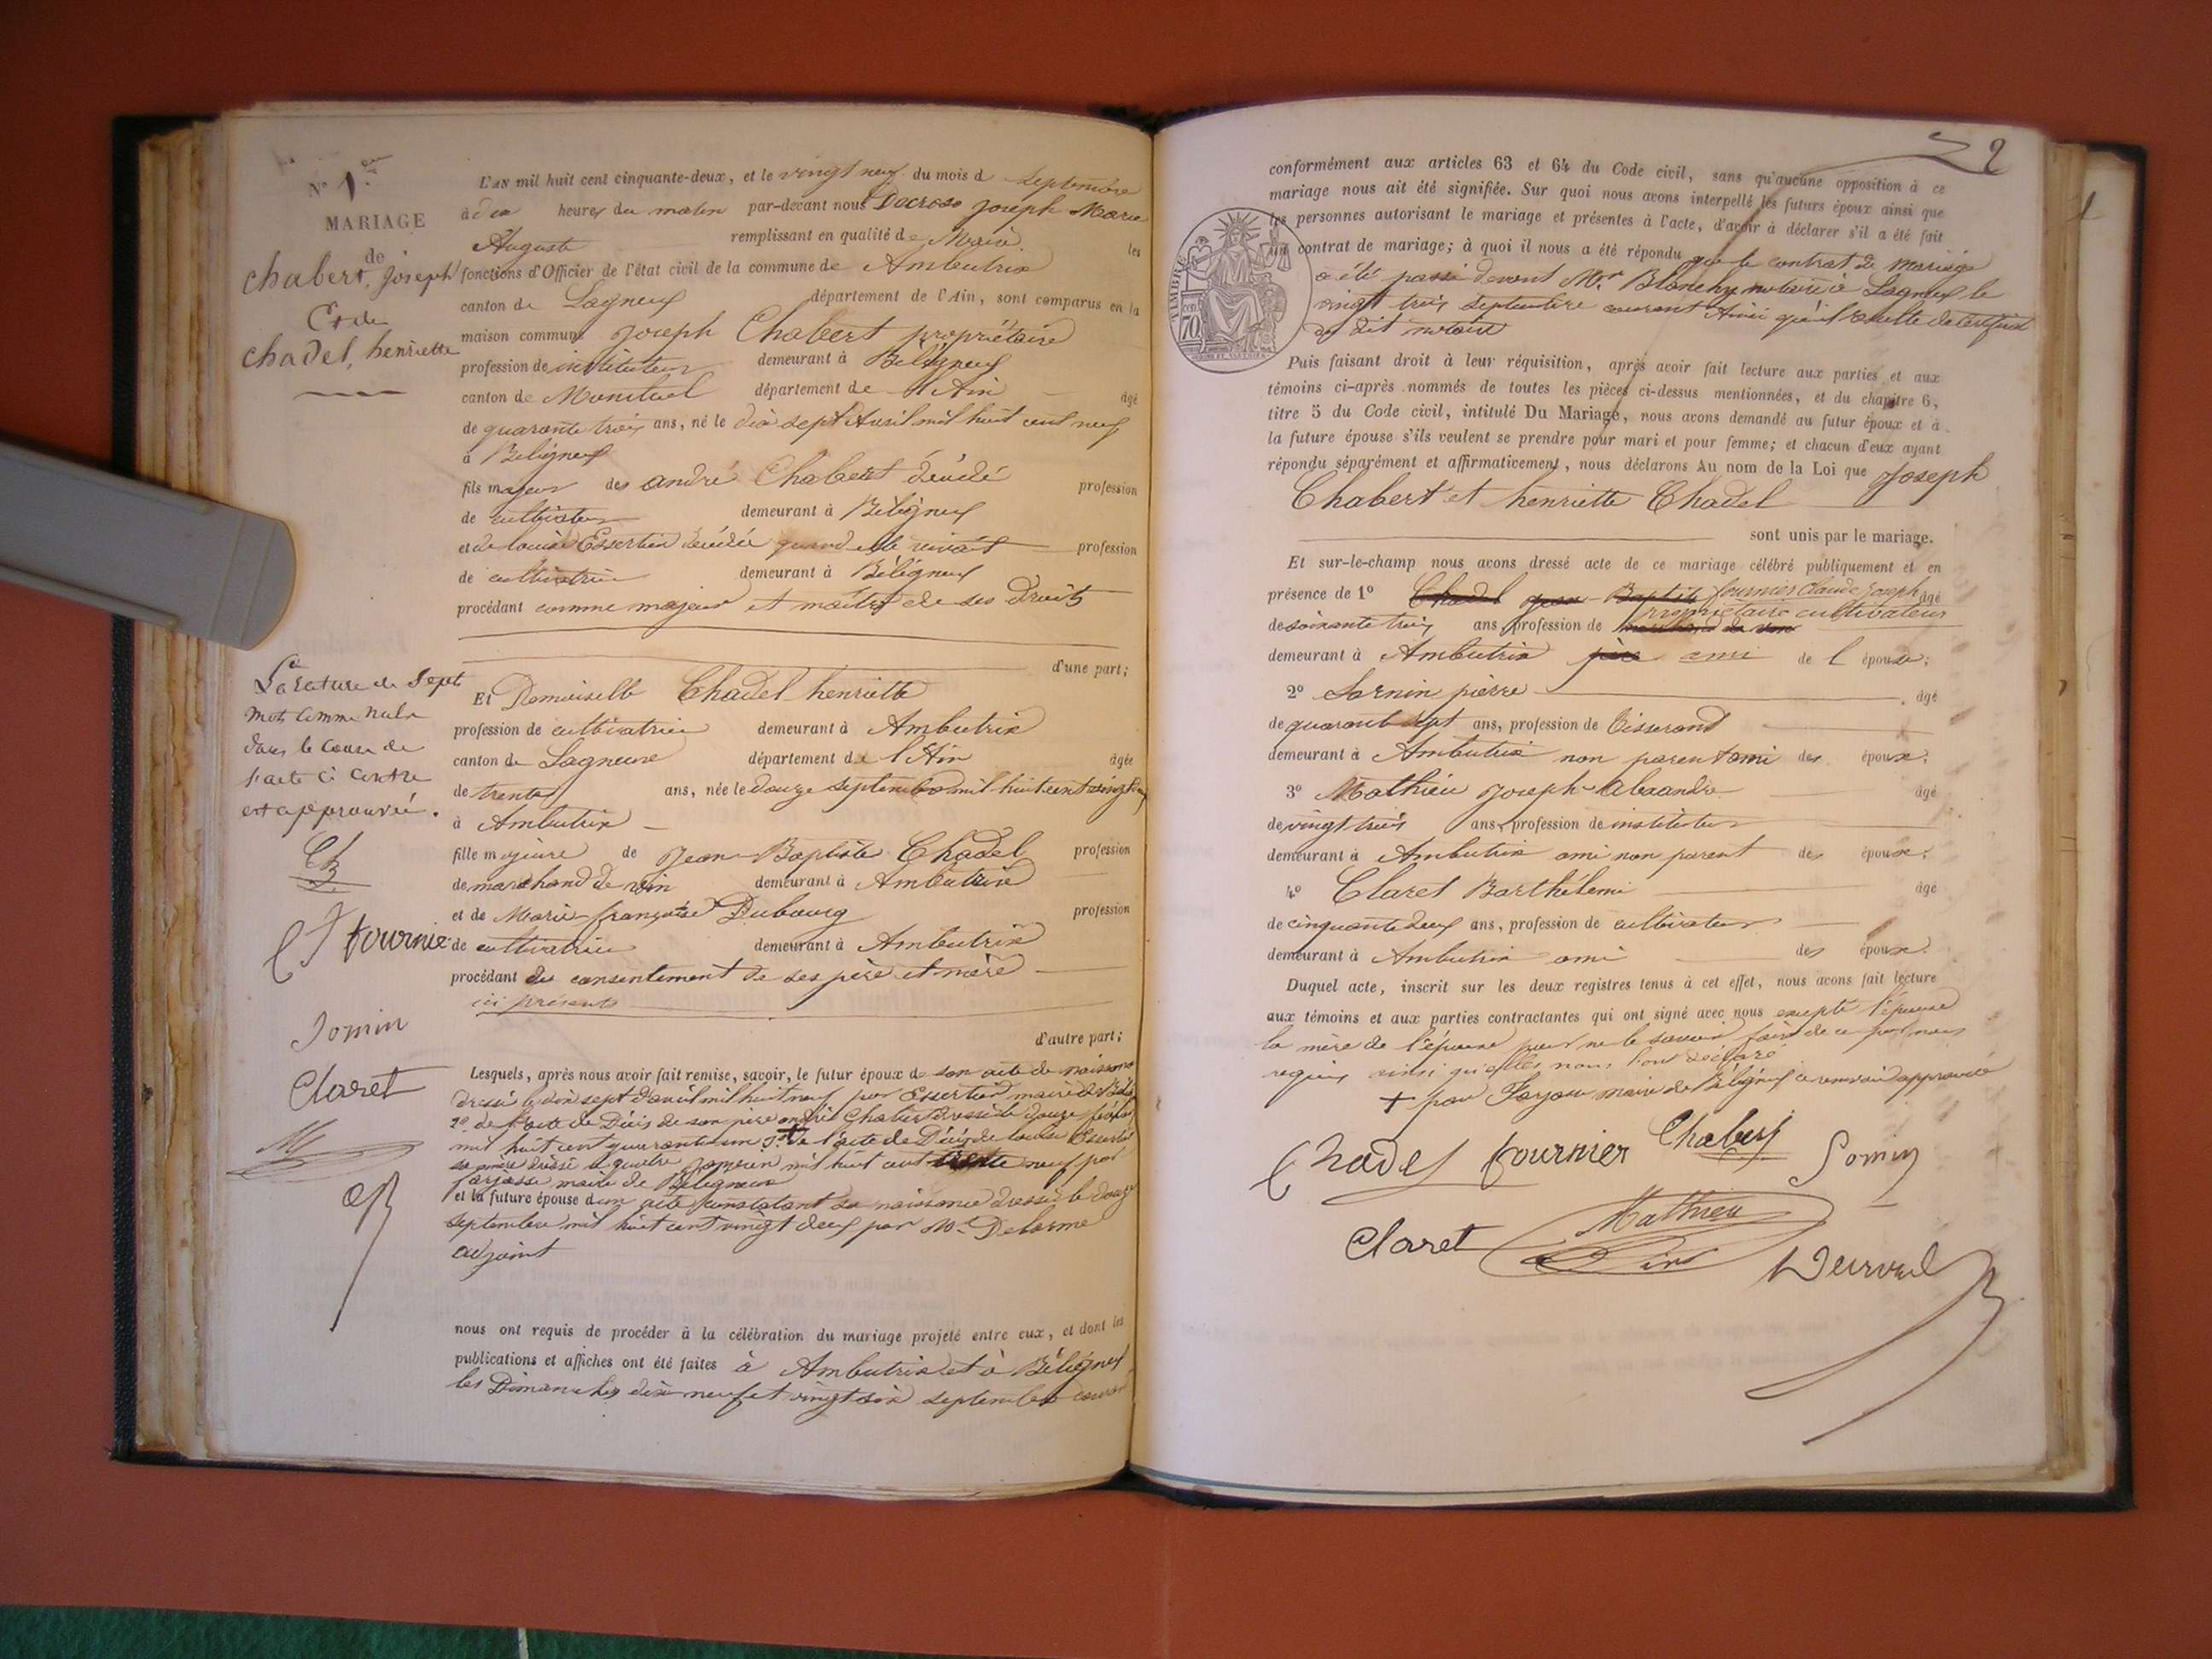 N° 1.er
MARIAGE
de
chabert, joseph
Et de
chadel, henriette
L'AN mil huit cent cinquante-deux, et le vingt neuf du mois d septembre
à dix heures du matin par-devant nous Ducroso joseph Marie
Auguste remplissant en qualité de Maire les
fonctions d'Officier de l'état civil de la commune de Ambutrix
canton de Lagneux département de l'Ain, sont comparus en la
maison commune joseph Chabert propriétaire
profession de instituteur demeurant à Béligneux
canton de Montluel département de l'Ain âgé
de quarante trois ans, né le dix sept Avril mil huit cent neuf
à Béligneux
fils majeur de andré Chabert décédé profession
de cultivateur demeurant à Béligneux
et de louise Essertier décédée quand elle vivait profession
de cultivatrice demeurant à Béligneux
procédant comme majeur et maître de ses Droits
d'une part;
Et Demoiselle Chadel henriette
profession de cultivatrice demeurant à Ambutrix
canton de Lagneux département de l'Ain âgée
de trente ans, née le douze septembre mil huit cent vingt deux
à Ambutrix
fille majeure de Jean-Baptiste Chadel profession
de marchand de vin demeurant à Ambutrix
et de Marie-françoise Dubourg profession
de cultivatrice demeurant à Ambutrix
procédant du consentement de ses père et mère
ici présents
d'autre part;
Lesquels, après nous avoir fait remise, savoir, le futur époux de son acte de naissance
dressé le dix sept d'avril mil huit neuf par Essertier maire de
2° de l'acte de Décès de son père andré Chabert dressé le douze
mil huit cent quarante un 3° + de l'acte de Décès de louise Essertier
sa mère dressé le quatre mil huit cent trente neuf par
maire de Béligneux
et la future épouse d'un acte constatant sa naissance dressé le douze
septembre mil huit cent vingt deux par Mr Delorme
adjoint
nous ont requis de procéder à la célébration du mariage projeté entre eux, et dont les
publications et affiches ont été faites à Ambutrix et à Béligneux
les Dimanches dix neuf et vingt six septembre courant
La rature de sept
mots comme nuls
dans le cours de
l'acte ci contre
est approuvée.
Ch
C J fournier
Somin
Claret
M
2
conformément aux articles 63 et 64 du Code civil, sans qu'aucune opposition à ce
mariage nous ait été signifiée. Sur quoi nous avons interpellé les futurs époux ainsi que
les personnes autorisant le mariage et présentes à l'acte, d'avoir à déclarer s'il a été fait
un contrat de mariage; à quoi il nous a été répondu que le contrat de mariage
a été passé devant Mr Blanchy notaire à Lagneux le
vingt trois septembre courant Ainsi qu'il résulte du certificat
du dit notaire
TIMBRE
70
Puis faisant droit à leur réquisition, après avoir fait lecture aux parties et aux
témoins ci-après nommés de toutes les pièces ci-dessus mentionnées, et du chapitre 6,
titre 5 du Code civil, intitulé Du Mariage, nous avons demandé au futur époux et à
la future épouse s'ils veulent se prendre pour mari et pour femme; et chacun d'eux ayant
répondu séparément et affirmativement, nous déclarons Au nom de la Loi que Joseph
Chabert et henriette Chadel
sont unis par le mariage.
Et sur-le-champ nous avons dressé acte de ce mariage célébré publiquement et en
présence de 1° Chadel Jean-Baptiste fournier Claude Joseph âgé
de soixante trois ans, profession de marchand de vin propriétaire cultivateur
demeurant à Ambutrix père ami de l'épouse;
2° Sornin pierre âgé
de quarante sept ans, profession de Tisserand
demeurant à Ambutrix non parent ami des époux;
3° Mathieu joseph-alexandre âgé
de vingt trois ans, profession de instituteur
demeurant à Ambutrix ami non parent des époux;
4° Claret Barthélemi âgé
de cinquante deux ans, profession de cultivateur
demeurant à Ambutrix ami des époux.
Duquel acte, inscrit sur les deux registres tenus à cet effet, nous avons fait lecture
aux témoins et aux parties contractantes qui ont signé avec nous excepté l'épouse
la mère de l'épouse pour ne le savoir faire de ce par nous
requis ainsi qu'elles nous l'ont déclaré
+ par maire de Béligneux ce renvoi approuvé
Chadel fournier Chabert Somin
Claret Mathieu